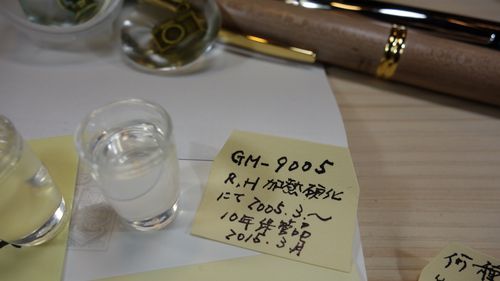 GM-9005
R,H 加熱硬化
にて 2005.3.～
10年保管品
2015.3月
何種